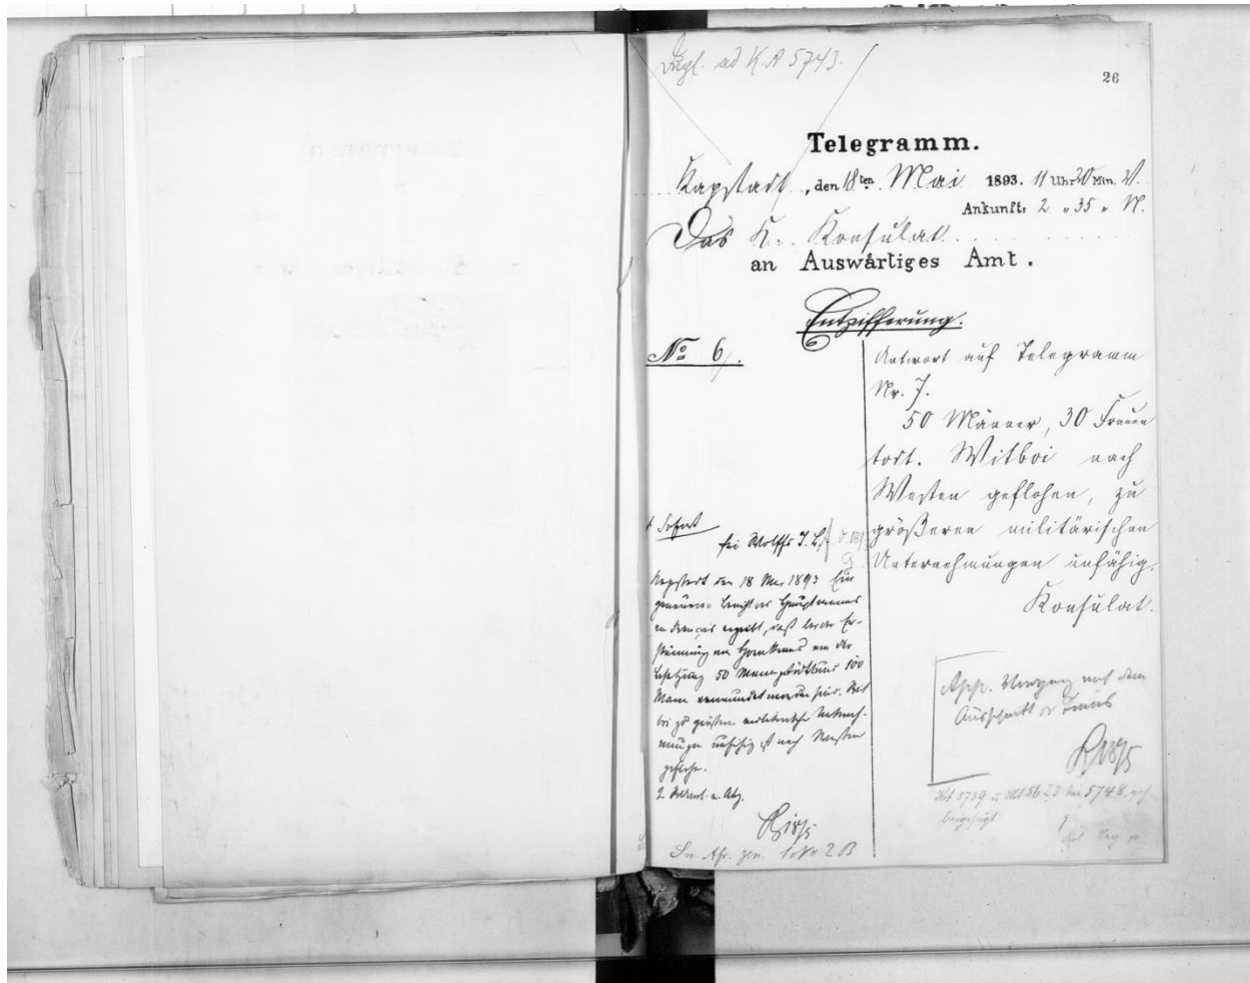 ad K.A 5743.
26
Telegramm.
Kapstadt, den 18ten Mai 1893. 11 Uhr 20 Min. V.
Ankunft: 2 " 35 " N.
Das K. Konsulat
an Auswärtiges Amt.
Entzifferung.
No 6.
Antwort auf Telegramm
Nr. 7.
50 Männer, 30 Frauen
tort. Witboi nach
Westen geflohen, zu
größeren militärischen
Unternehmungen unfähig.
Konsulat.
Sofort
bei Wolffs T. B.
Kapstadt den 18 Mai 1893 Ein
Bericht des Hauptmanns
ergibt, daß bei der Er-
stürmung von Hornkranz von der
Besatzung 50 Mann getödtet und 100
Mann verwundet worden sind. Wit-
boi zu größeren militärischen Unterneh-
mungen unfähig ist nach Westen
geflohen.
nach dem
Ausschnitt
5739 5623 5748
beigefügt